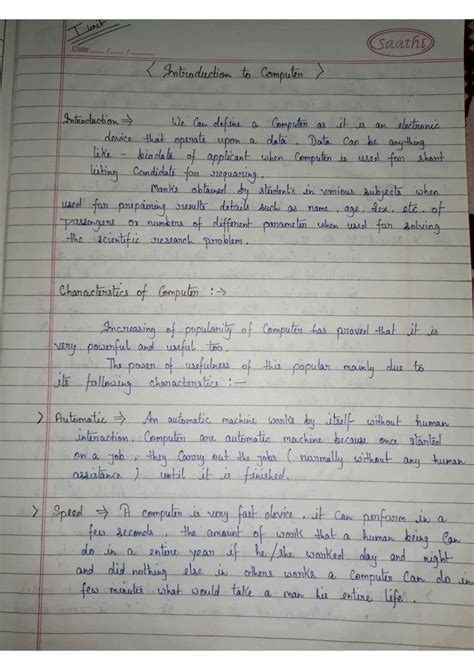 I unit
Date ...../...../.....
Saathi
< Introduction to Computer >
Introduction ⇒ We Can define a Computer as it is an electronic
device that operate upon a data. Data Can be anything
like - biodata of applicant when Computer is used for short
listing Candidate for requaring.
Marks obtained by students in various subjects when
used for prepairing results details such as name, age, sex, etc. of
passengers or numbers of different parameter when used for solving
the scientific research problem.
Characterstics of Computer :→
Increasing of popularity of Computer has proved that it is
very powerful and useful too.
The power of usefulness of this popular mainly due to
its following characterstics :—
> Automatic ⇒ An automatic machine works by itself without human
interaction. Computer are automatic machine because once started
on a job, they Carry out the jobs ( normally without any human
assistance ) until it is finished.
> Speed ⇒ A computer is very fast device, it can perform in a
few seconds, the amount of work that a human being Can
do in a entire year if he/she worked day and night
and did nothing else in others works a Computer Can do in
few minutes what would take a man his entire life.